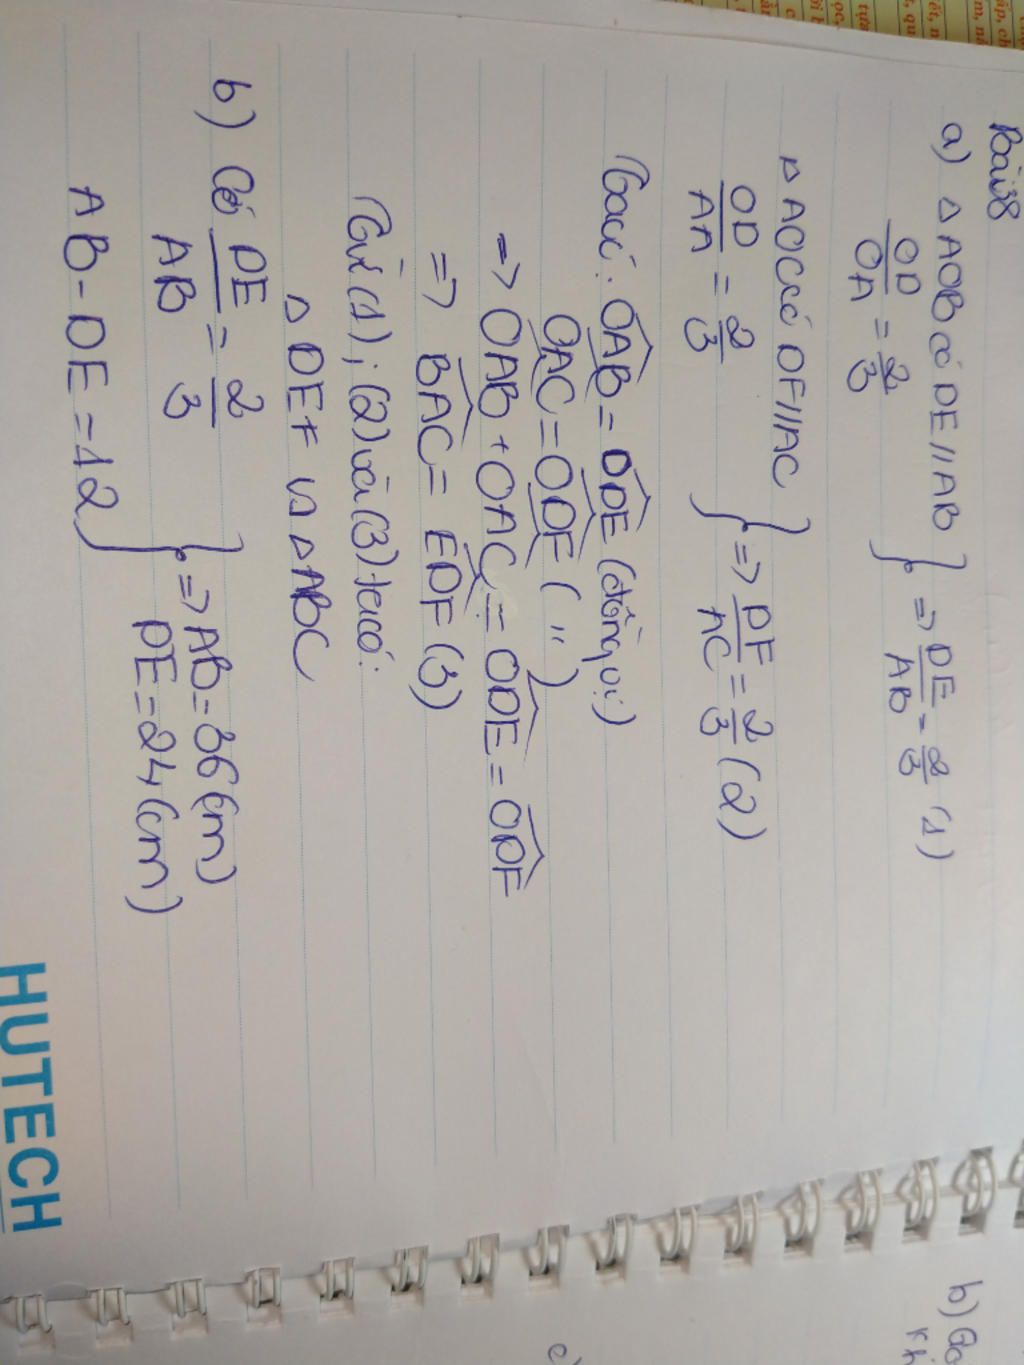 Bài 8
a) △AOB có DE//AB
OD/OA = 2/3 } => DE/AB = 2/3 (1)
△AOC có DF//AC
OD/AA = 2/3 } => DF/AC = 2/3 (2)
Ta có: OAB = ODE (đồng vị)
OAC = ODF ( " )
=> OAB + OAC = ODE = ODF
=> BAC = EDF (3)
Từ (1); (2) và (3) ta có:
△DEF ∽ △ABC
b) Có DE/AB = 2/3 } => AB = 36 (cm)
AB - DE = 12 DE = 24 (cm)
HUTECH
b)